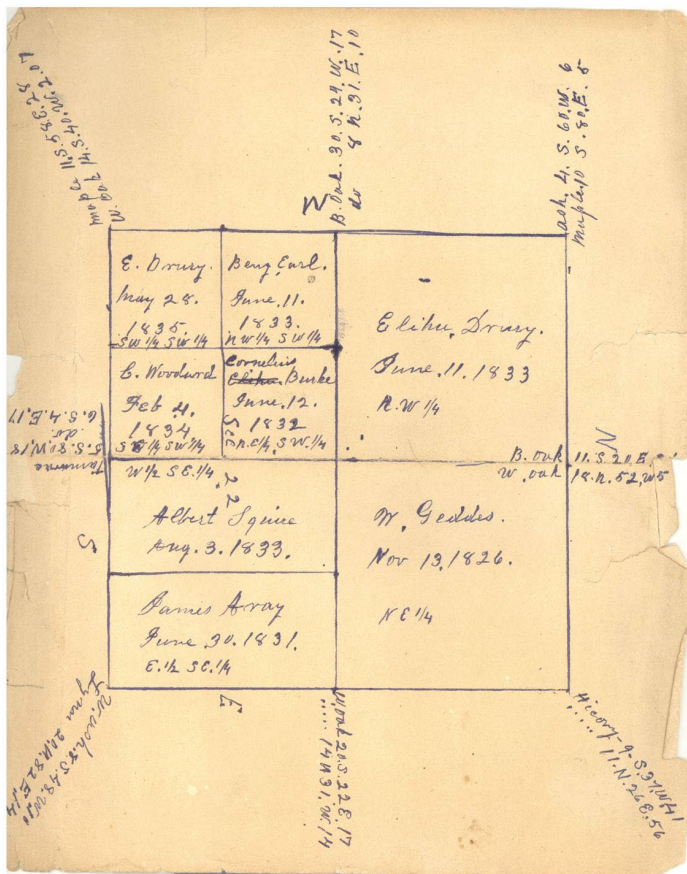 maple 11. S. 58. E. 28
W. Oak 14. S. 40. W. 2.07
B. Oak. 30. S. 29. W. 17
do 8 N. 31. E. 10
ash. 4. S. 60. W. 6
maple 10 S. 80. E. 5
W
E. Drury.
May 28.
1835
SW 1/4 SW 1/4
Benj Earl.
June. 11.
1833.
NW 1/4 SW 1/4
Elihu. Drury.
June. 11. 1833
N. W 1/4
C. Woodard
Feb 4.
1834
SE 1/4 SW 1/4
Cornelius
Elihu Burke
June. 12.
1832
N. E 1/4 S. W. 1/4
Sec
22
5. S. 80 W. 18
do.
6. S. 4. E. 17
S
N
B. oak 11. S. 20. E
W. oak 18. N. 52. W 5
W 1/2 S E. 1/4
Albert Squire
Aug. 3. 1833.
W. Geddes.
Nov 13, 1826.
N E 1/4
James Aray
June 30. 1831.
E. 1/2 S E. 1/4
E
W. ash. 8. S. 48. W.
Lynn 20. N. 82 E. 14
W. oak 20. S. 22 E. 17
..... 14 N 31. W. 14
Hicory - 9 - S. 37. W. 41
..... 11. N. 26 E. 56